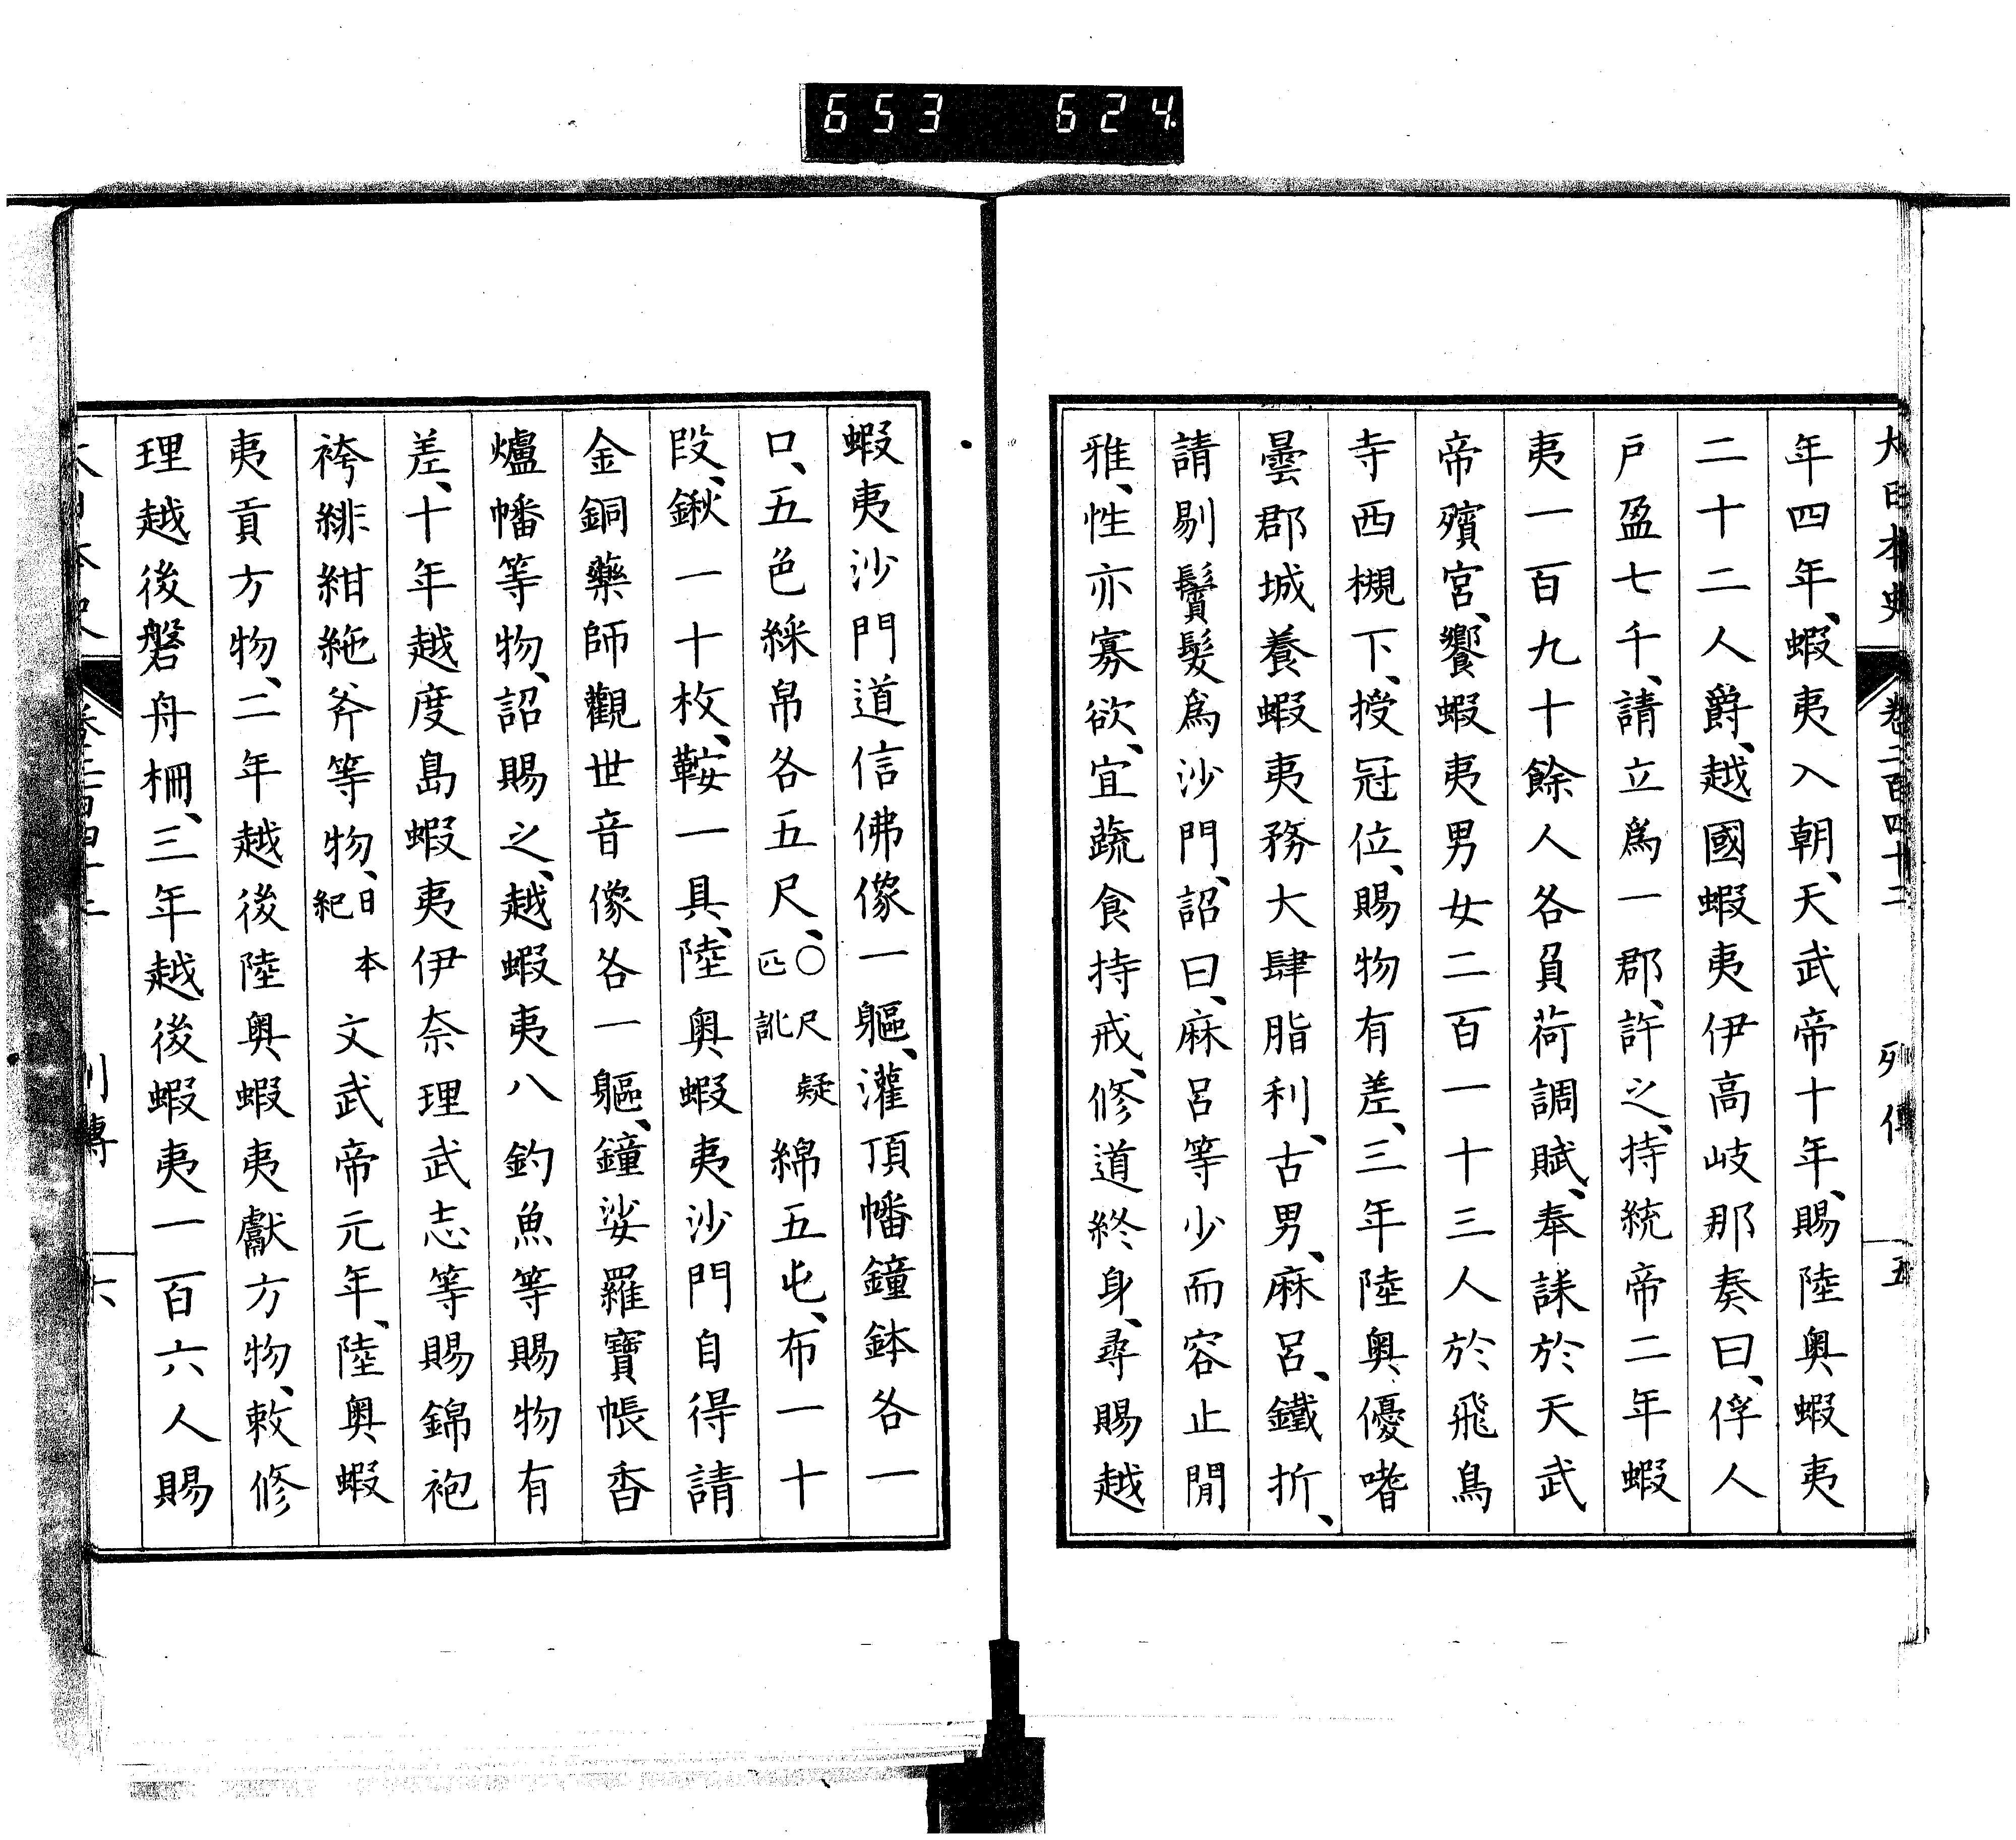 653 624
大日本史 卷二百四十二 列傳 五
年四年、蝦夷入朝、天武帝十年、賜陸奥蝦夷
二十二人爵、越國蝦夷伊高岐那奏曰、俘人
戸盈七千、請立爲一郡、許之、持統帝二年蝦
夷一百九十餘人各負荷調賦、奉誄於天武
帝殯宮、饗蝦夷男女二百一十三人於飛鳥
寺西槻下、授冠位、賜物有差、三年陸奥優嗜
曇郡城養蝦夷務大肆脂利、古男、麻呂、鐵折、
請剔鬢髮爲沙門、詔曰、麻呂等少而容止閒
雅、性亦寡欲、宜蔬食持戒、修道終身、尋賜越
蝦夷沙門道信佛像一軀、灌頂幡鐘鉢各一
口、五色綵帛各五尺、〇尺疑匹訛綿五屯、布一十
段、鍬一十枚、鞍一具、陸奥蝦夷沙門自得請
金銅藥師觀世音像各一軀、鐘娑羅寶帳香
爐幡等物、詔賜之、越蝦夷八釣魚等賜物有
差、十年越度島蝦夷伊奈理武志等賜錦袍
袴緋紺絁斧等物、日本紀文武帝元年、陸奥蝦
夷貢方物、二年越後陸奥蝦夷獻方物、敕修
理越後磐舟柵、三年越後蝦夷一百六人賜